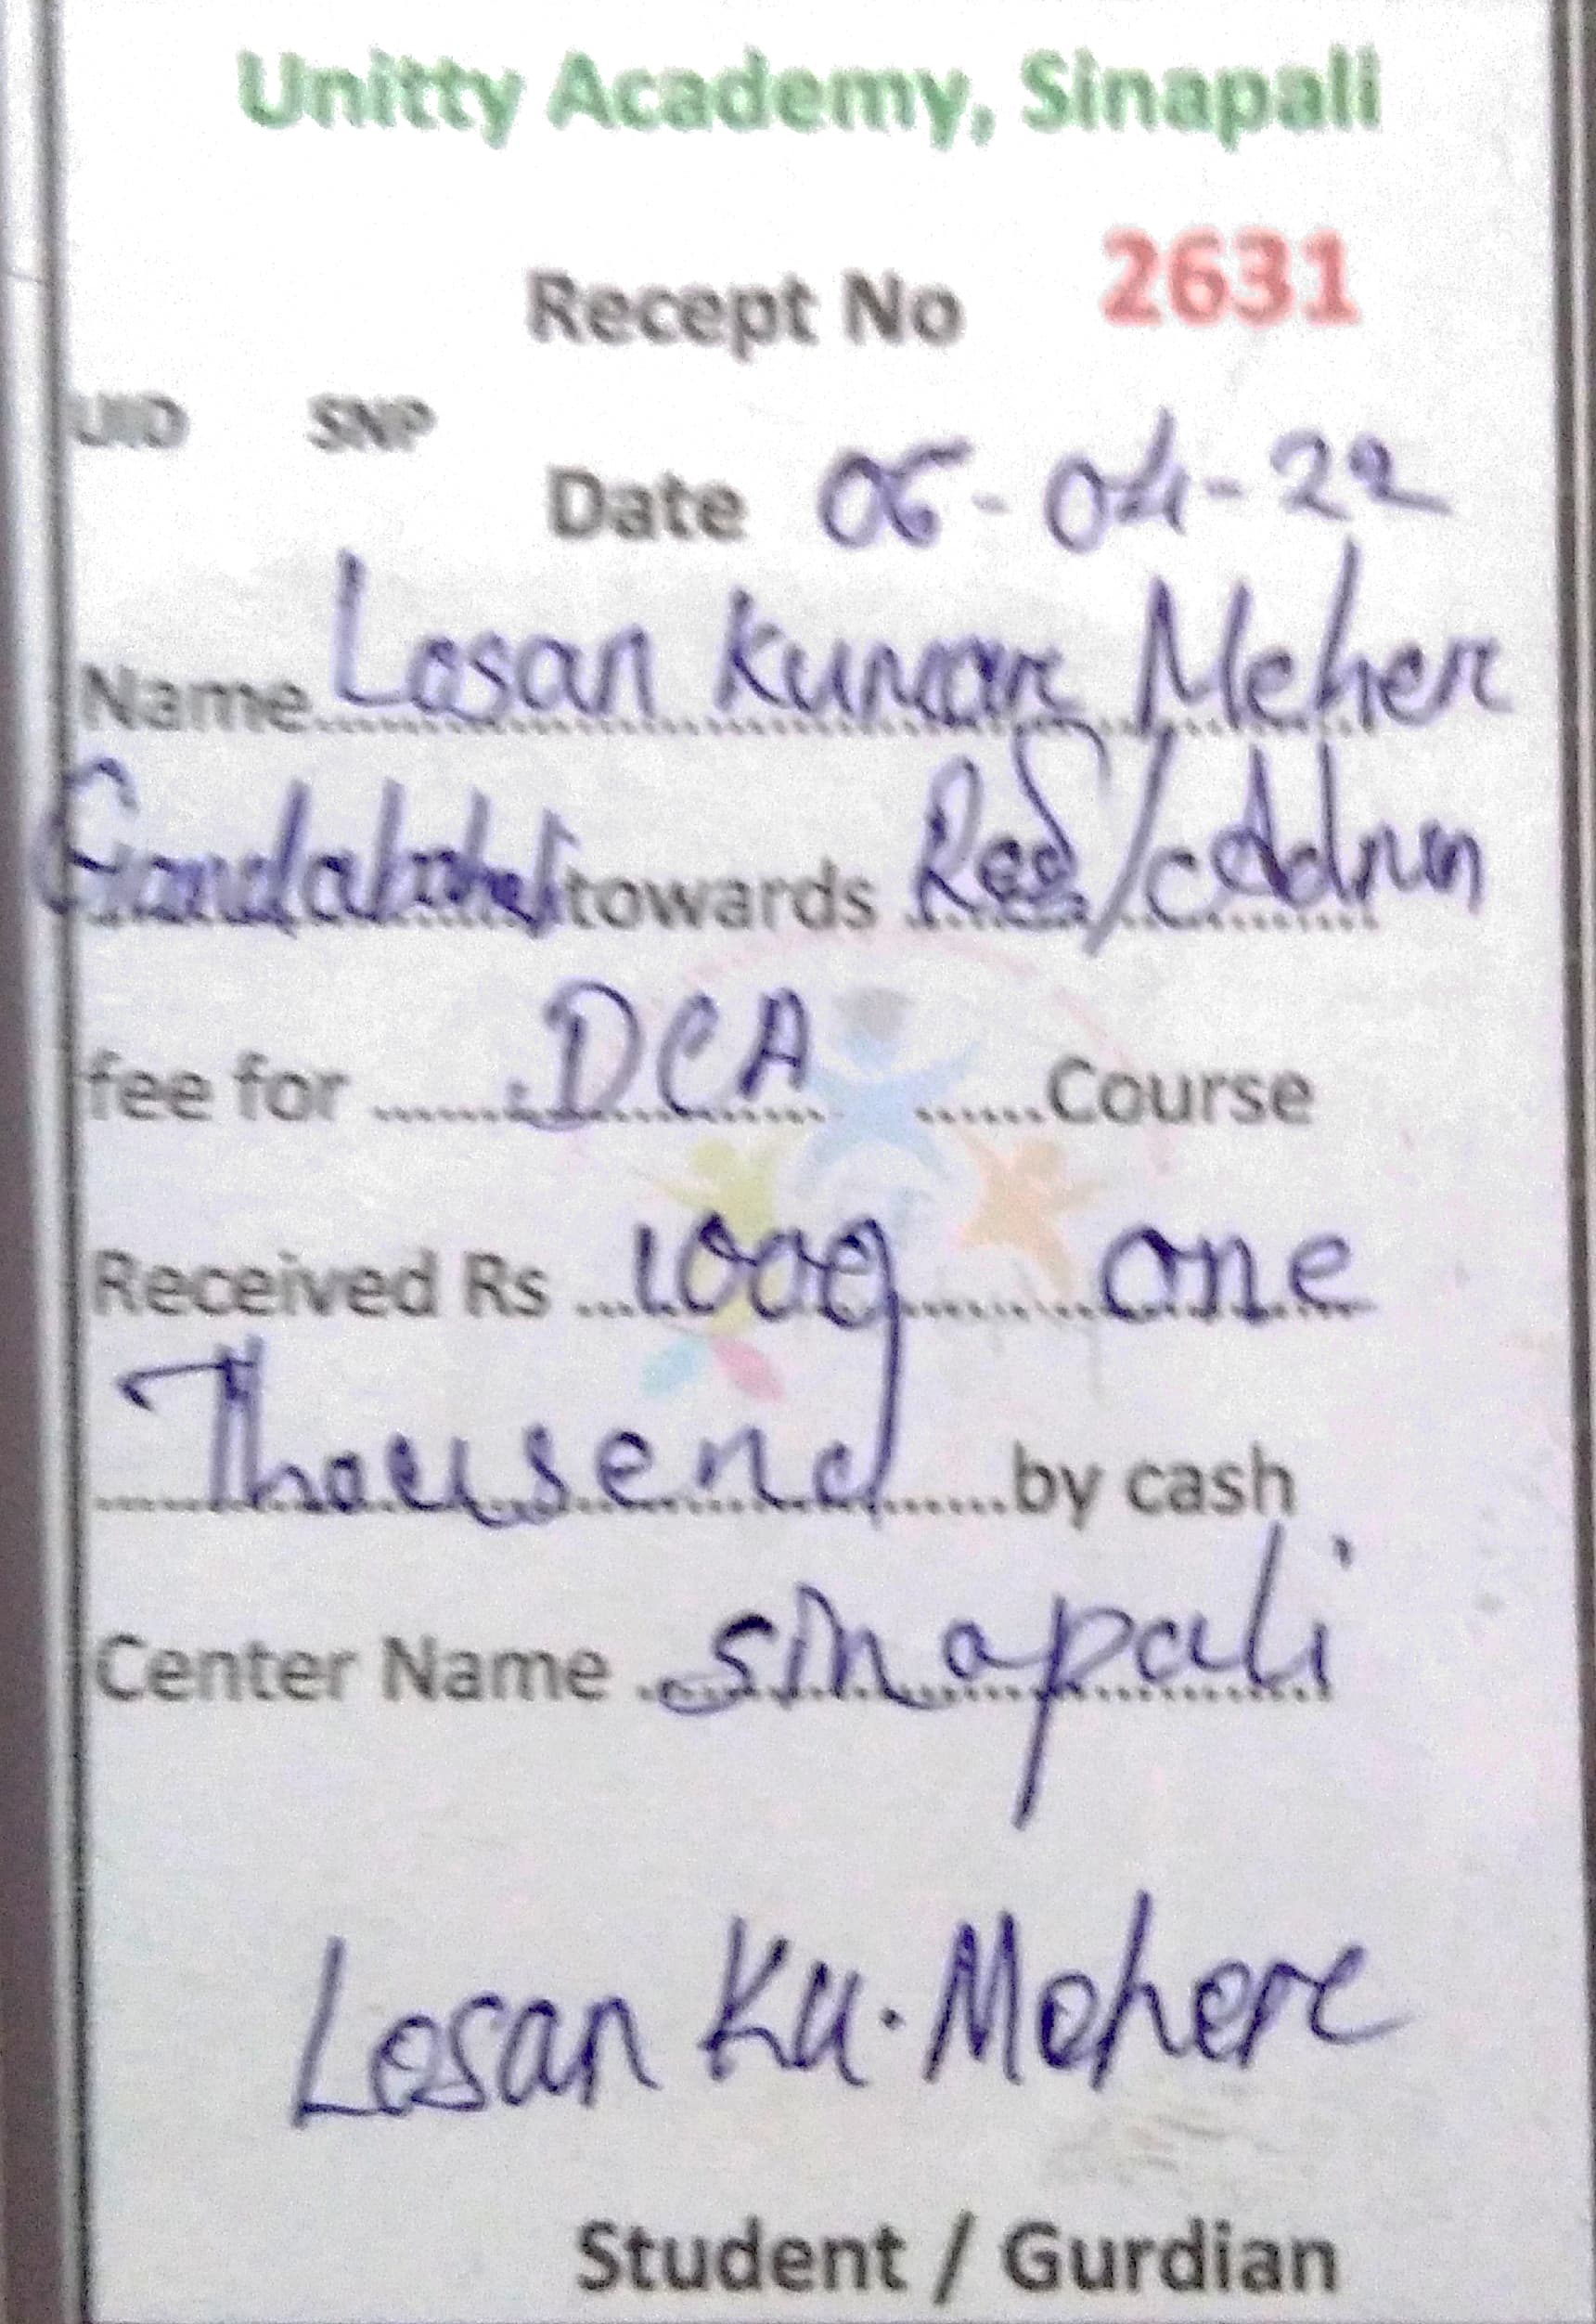 Unitty Academy, Sinapali
Recept No 2631
UID SNP
Date 05-04-22
Name Losan Kumar Meher
towards Reg/Admn
fee for DCA Course
Received Rs 1000 one
Thousend by cash
Center Name Sinapali
Losan Ku. Meher
Student / Gurdian